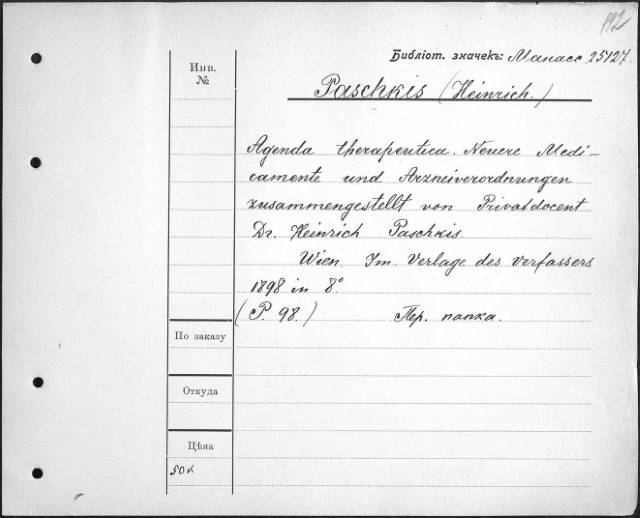 Библіот. значекъ: Манасс 25127.
Инв.
№
Paschkis (Heinrich.)
Agenda therapeutica. Neuere Medi-
camente und Arzneiverordnungen
zusammengestellt von Privatdocent
Dr. Heinrich Paschkis
Wien. Im. Verlage des Verfassers
1898 in 8°
(P. 98.) Пер. папка.
По заказу
Откуда
Цѣна
50 к